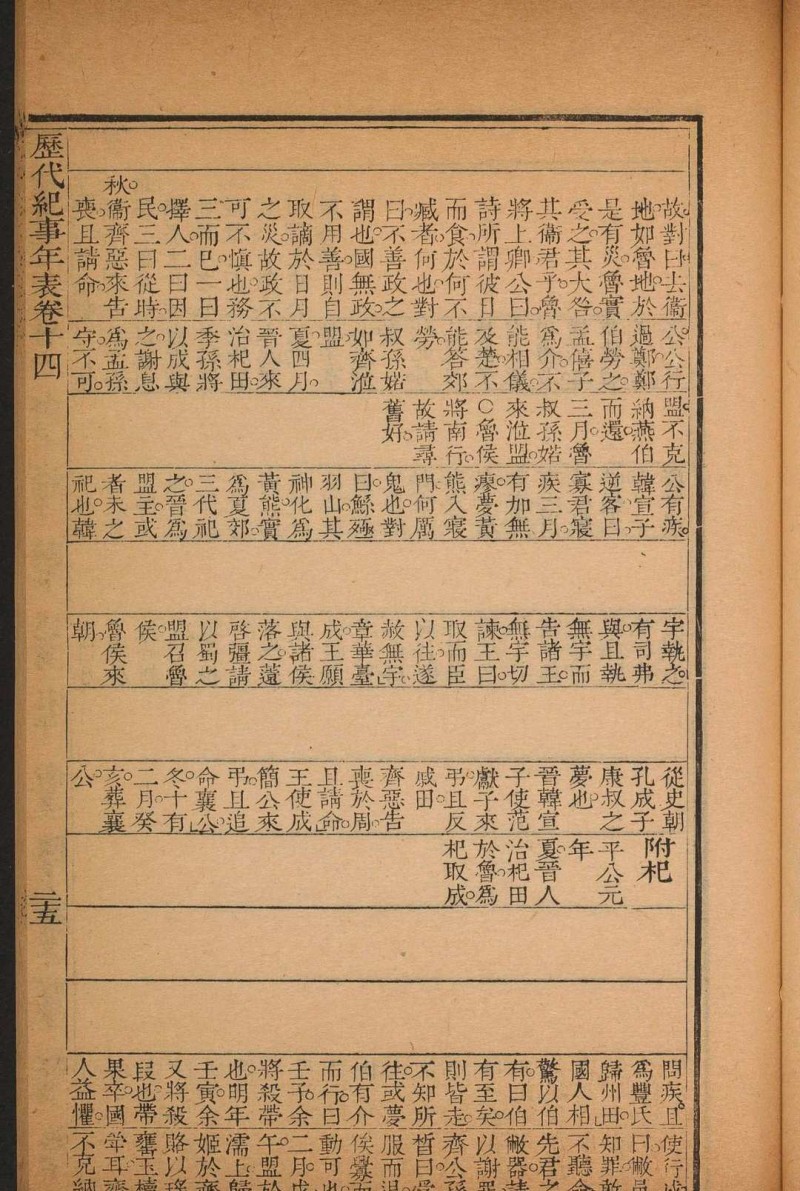 歷代紀事年表卷十四
二十五
故對曰去衞
地如魯地於
是有災魯實
受之其大咎
其衞君乎魯
將上卿公曰
詩所謂彼日
而食於何不
臧者何也對
曰不善政之
謂也國無政
不用善則自
取謫於日月
之災故政不
可不慎也務
三而已一曰
擇人二曰因
民三曰從時
秋衞齊惡來告
喪且請命
公公行
過鄭鄭
伯勞之
孟僖子
爲介不
能相儀
及楚不
能答郊
勞
叔孫婼
如齊涖
盟
夏四月
晉人來
治杞田
季孫將
以成與
之謝息
爲孟孫
守不可
盟不克
納燕伯
而還
三月魯
叔孫婼
來涖盟
○魯侯
將南行
故請尋
舊好
公有疾
韓宣子
逆客曰
寡君寢
疾三月
有加無
瘳夢黃
熊入寢
門何厲
鬼也對
曰鯀殛
羽山其
神化爲
黃熊實
爲夏郊
三代祀
之晉爲
盟主或
者未之
祀也韓
宇執之
有司弗
與且執
無宇而
告諸王
無宇切
諫王曰
取而臣
以往遂
赦無宇
章華臺
成王願
與諸侯
落之薳
啓彊請
以蜀之
盟召魯
侯
魯侯來
朝
從史朝
孔成子
康叔之
夢也
晉韓宣
子使范
獻子來
弔且反
戚田
齊惡告
喪於周
且請命
王使成
簡公來
弔且追
命襄公
冬十有
二月癸
亥葬襄
公
附杞
平公元
年
夏晉人
治杞田
於魯爲
杞取成
問疾且
爲豐氏
歸州田
國人相
驚以伯
有曰伯
有至矣
則皆走
不知所
往或夢
伯有介
而行曰
壬子余
將殺帶
也明年
壬寅余
又將殺
段也帶
果卒國
人益懼
使行成
曰敝邑
知罪敢
不聽命
先君之
敝器請
以謝罪
齊公孫
晳曰受
服而退
俟釁而
動可也
二月戊
午盟於
濡上歸
姬於齊
賂以瑤
罋玉櫝
斝耳齊
不克納